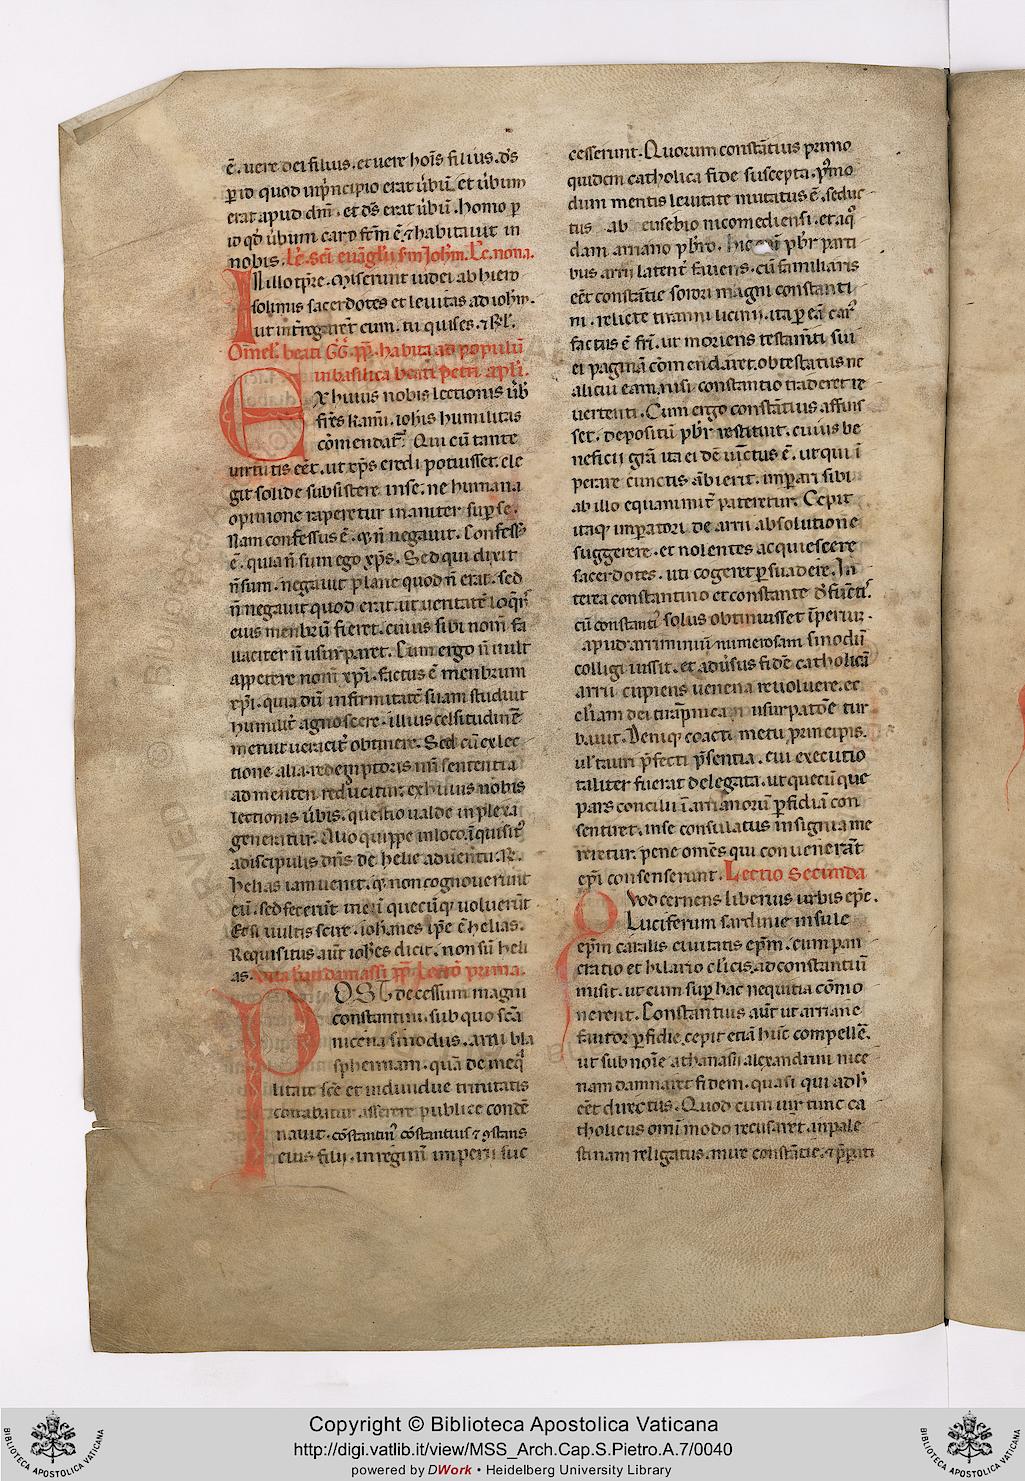 ē. uere dei filius. et uere hoīs filius. d̄s
ꝑ id quod inp̄ncipio erat úbū. et úbum
erat apud dm̄. et d̄s erat úbū. homo ꝑ
id qđ úbum caro fcm̄ ē. ⁊ habitauit in
nobis. Lc̄. sc̄i euāglii s̄m Ioh̄m. Lc̄. nona.
In illo tp̄re. Miserunt iudei ab hiero
solimis sacerdotes et leuitas ad ioh̄m.
ut int̄rogarēt eum. tu quis es. ⁊ Rł.
Omel. beati GG̅. pp̄. habita ad populū
in basilica beati petri apłi.
Ex huius nobis lectionis úb̄
fr̄es kar̄mi. ioh̄is humilitas
cōmendat᷑. Qui cū tante
uirtutis eēt. ut xp̄s credi potuisset. ele
git solide subsistere in se. ne humana
opinione raperetur inaniter suꝑ se.
Nam confessus ē. ⁊ n̄ negauit. Confess᷒
ē. quia n̄ sum ego xp̄s. Sed qui dixit
n̄ sum. negauit plane quod n̄ erat. sed
n̄ negauit quod erat. ut ueritatē loq̄ns
eius menbrū fieret. cuius sibi nom̄ fa
llaciter n̄ usurparet. Cum ergo n̄ uult
appetere nom̄ xp̄i. factus ē menbrum
xp̄i. quia dū infirmitatē suam studuit
humilit̄ agnoscere. illius celsitudinē
meruit ueracit̄ obtinere. Sed cū ex lec
tione alia redemptoris nr̄i sententia
ad mentem reducitur. ex huius nobis
lectionis úbis. questio ualde inplexa
generatur. Alio quippe in loco. inquisit᷒
a discipulis dn̄s de helie aduentu. R̄.
helias iam uenit. ⁊ non cognouerunt
eū. sed fecerūt in eū quecūq; uoluerūt
Et si uultis scire. ioh̄anes ip̄e ē helias.
Requisitus aūt ioh̄es dicit. non sū heli
as. Vita sc̄i damassi pp̄. Lectō prima.
POST decessum magni
constantini. sub quo sc̄a
nicena sinodus. arrii bla
sphemiam. quā de ineq̄
litate sc̄e et indiuidue trinitatis
conabatur asserere publice condē
nauit. cōstantin᷒ cōstantius ⁊ ꝯstans
eius filii. in regim̄ imperii suc
cesserunt. Quorum constātius primo
quidem catholica fide suscepta. pᵒmo
dum mentis leuitate mutatus ē. seduc
tus ab eusebio nicomediensi. et a q̊
dam arriano pb̄ro. hic pb̄r parti
bus arrii latent̄ fauens. cū familiaris
eēt constātie sorori magni constanti
ni. relicte tiranni licinii. ita ꝑ eā car᷒
factus ē fr̄i. ut moriens testam̄ti sui
ei paginā cōmendaret. obtestatus ne
alicui eam nisi constantio traderet re
uertenti. Cum ergo constātius affuis
set. depositū pb̄r restituit. cuius be
neficii grā ita ei deuīctus ē. ut qui ī
perare cunctis ābierit. imꝑari sibi
ab illo equanimit̄ pateretur. Cepit
itaq; imꝑatori de arrii absolutione
suggerere. et nolentes acquiescere
sacerdotes. uti cogeret ꝑsuadere. In
terea constantino et constante defūctis.
cū constanti᷒ solus obtinuisset īperiū.
apud arriminū numerosam sinodū
colligi iussit. et adúsus fidē catholicā
arrii cupiens uenena reuoluere. ec
cl̄iam dei tirāpnica usurpatoē tur
bauit. Deniq; coacti metu principis.
ul tauri p̄fecti p̄sentia. cui executio
taliter fuerat delegata. ut quecūque
pars concilii ī arrianorū ꝑfidiā con
sentiret. in se consulatus insignia me
reretur. pene omēs qui conuenerāt
ep̄i consenserunt. Lectio secunda
Quod cernens liberius urbis ep̄c.
Luciferum sardinie insule
ep̄m caralis ciuitatis ep̄m. cum pan
cratio et hilario cl̄icis. ad constantiū
misit. ut eum suꝑ hac nequitia cōmo
nerent. Constantius aūt ut arriane
fautor ꝑfidie. cepit etiā hūc compellē.
ut sub noīe athanasii alexandrini nice
nam damnaret fidem. quasi qui ad h̄
eēt directus. Quod cum uir tunc ca
tholicus omīmodo recusarēt. in pale
stinam religatus. mire constātie. ⁊ p̄parati
Copyright © Biblioteca Apostolica Vaticana
http://digi.vatlib.it/view/MSS_Arch.Cap.S.Pietro.A.7/0040
powered by DWork • Heidelberg University Library
BIBLIOTECA APOSTOLICA VATICANA
BIBLIOTECA APOSTOLICA VATICANA